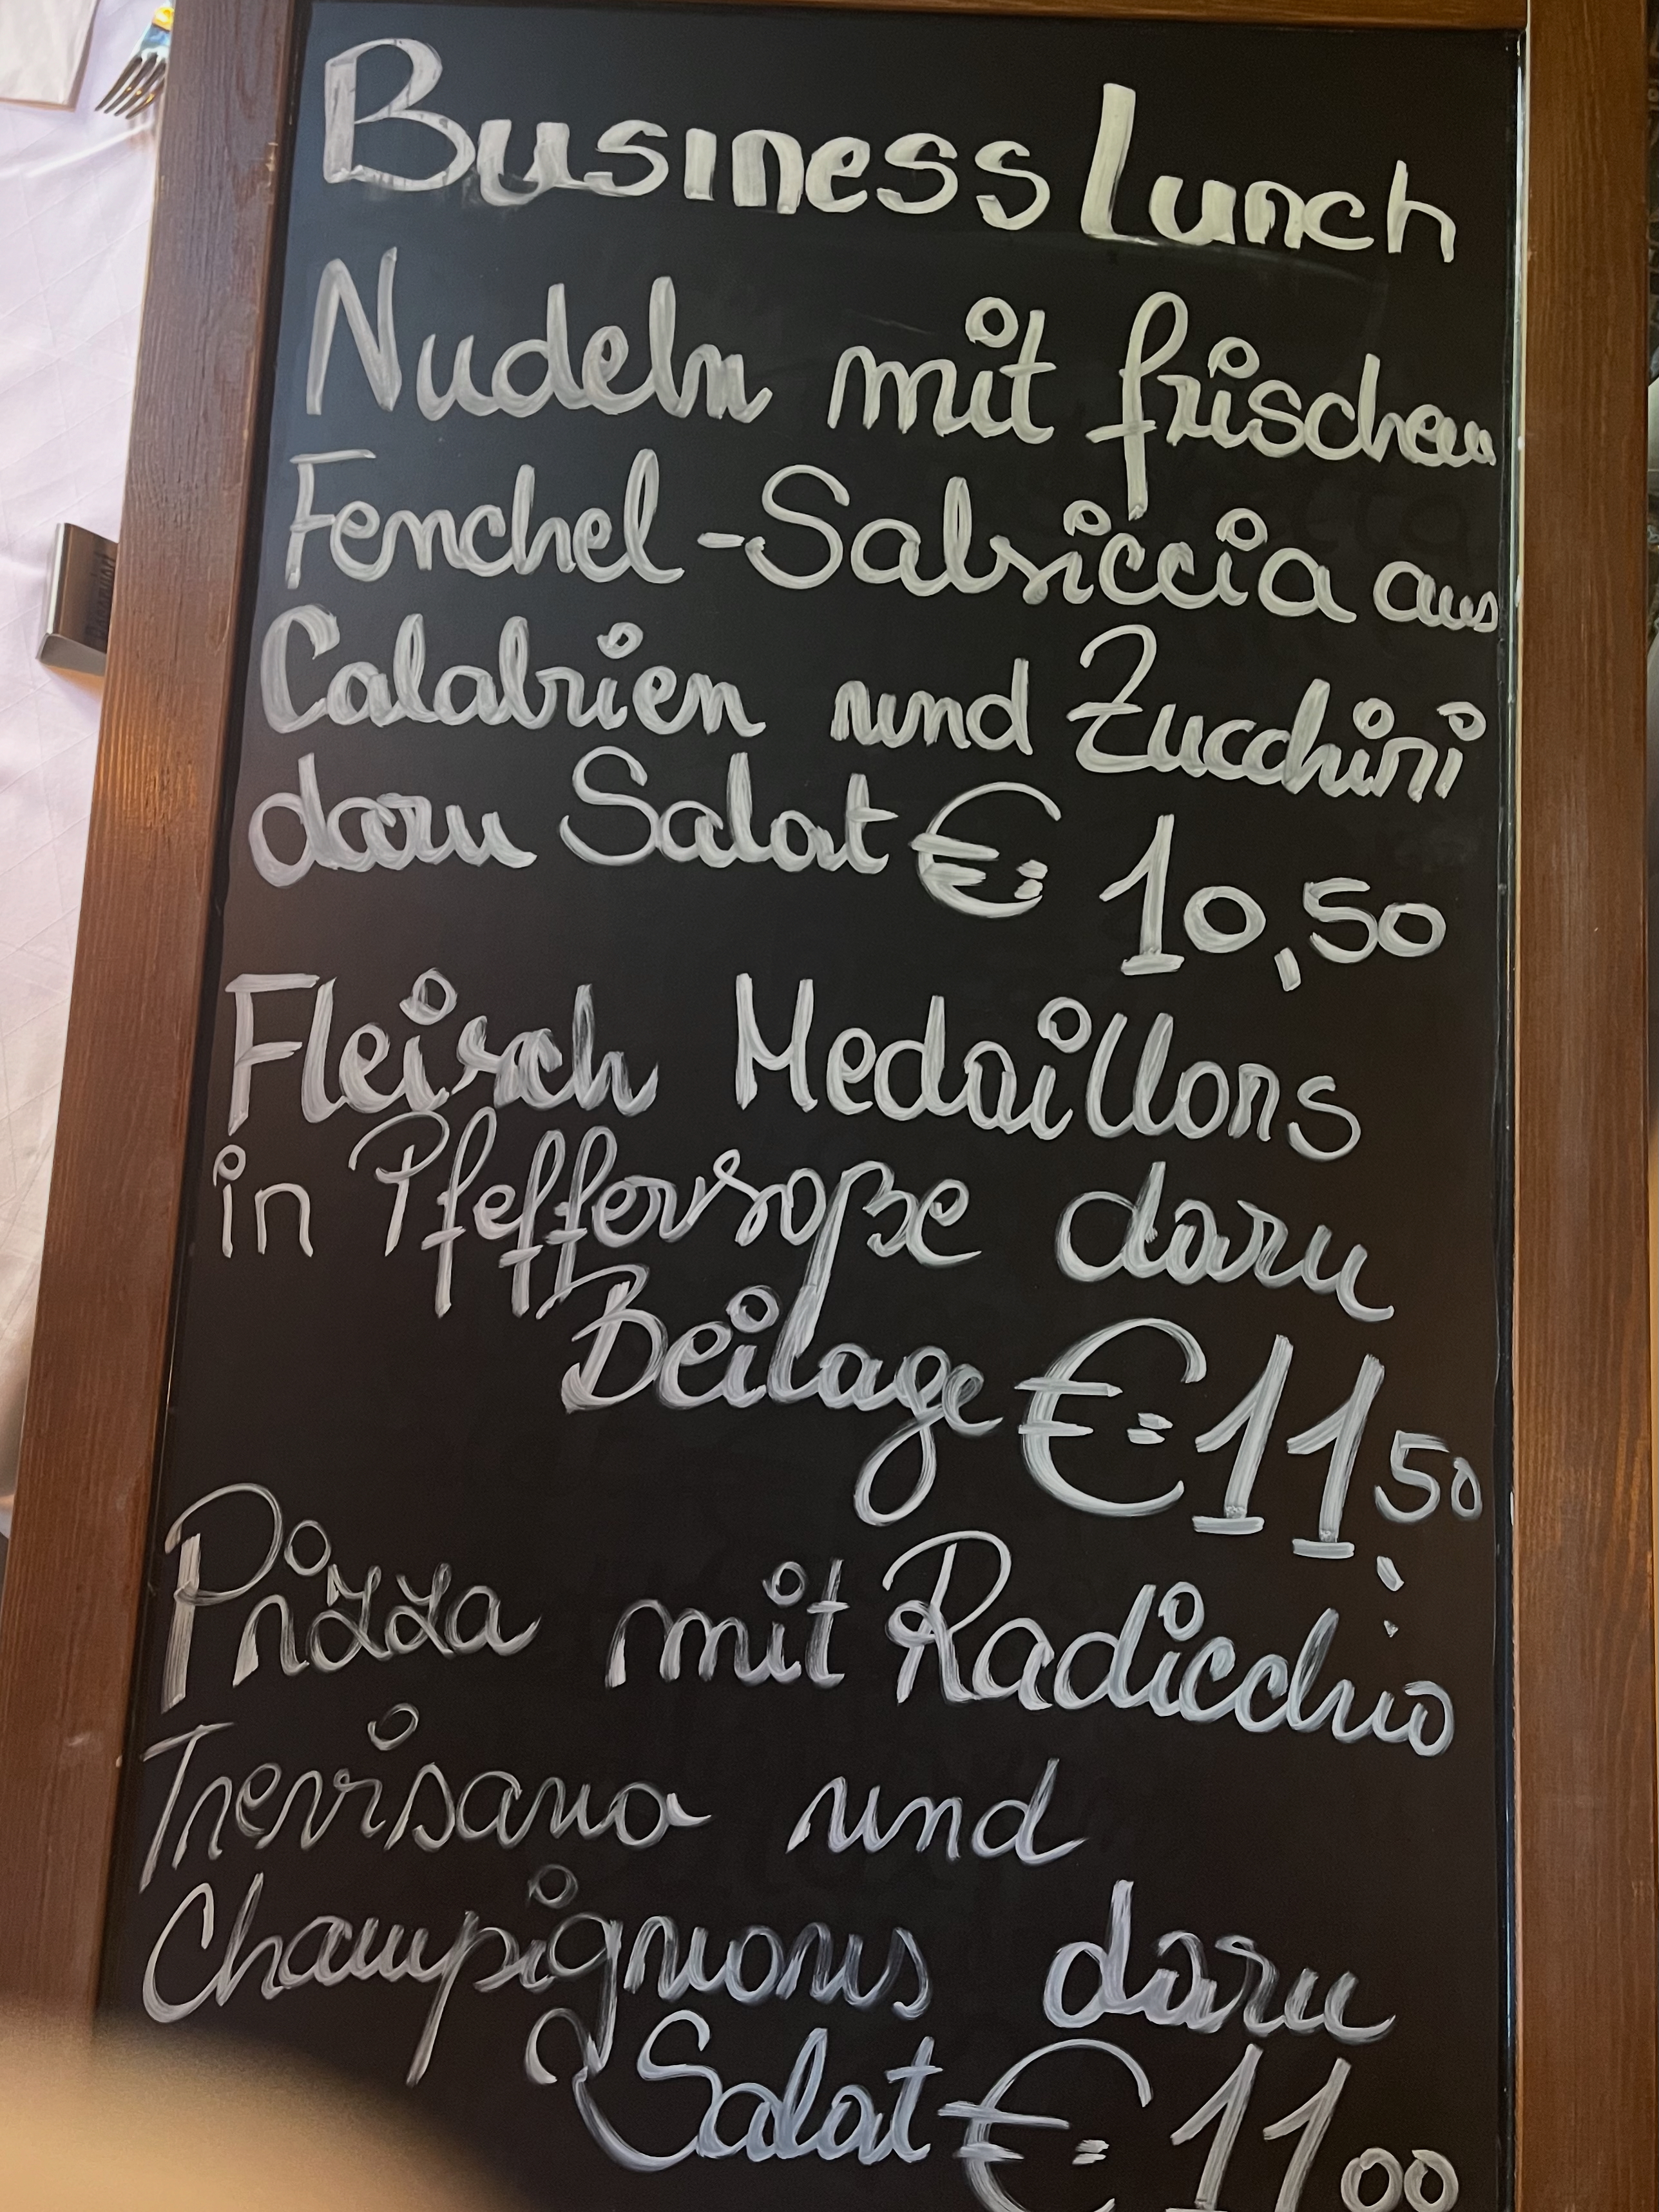 Business Lunch
Nudeln mit frischen
Fenchel-Salsiccia aus
Calabrien und Zucchini
dazu Salat €= 10,50
Fleisch Medaillons
in Pfeffersoße dazu
Beilage €= 11,50
Pizza mit Radicchio
Trevisano und
Champignons dazu
Salat €= 11,00